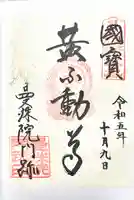 國寶
令和五年
十月九日
黄不動尊
曼殊院門跡